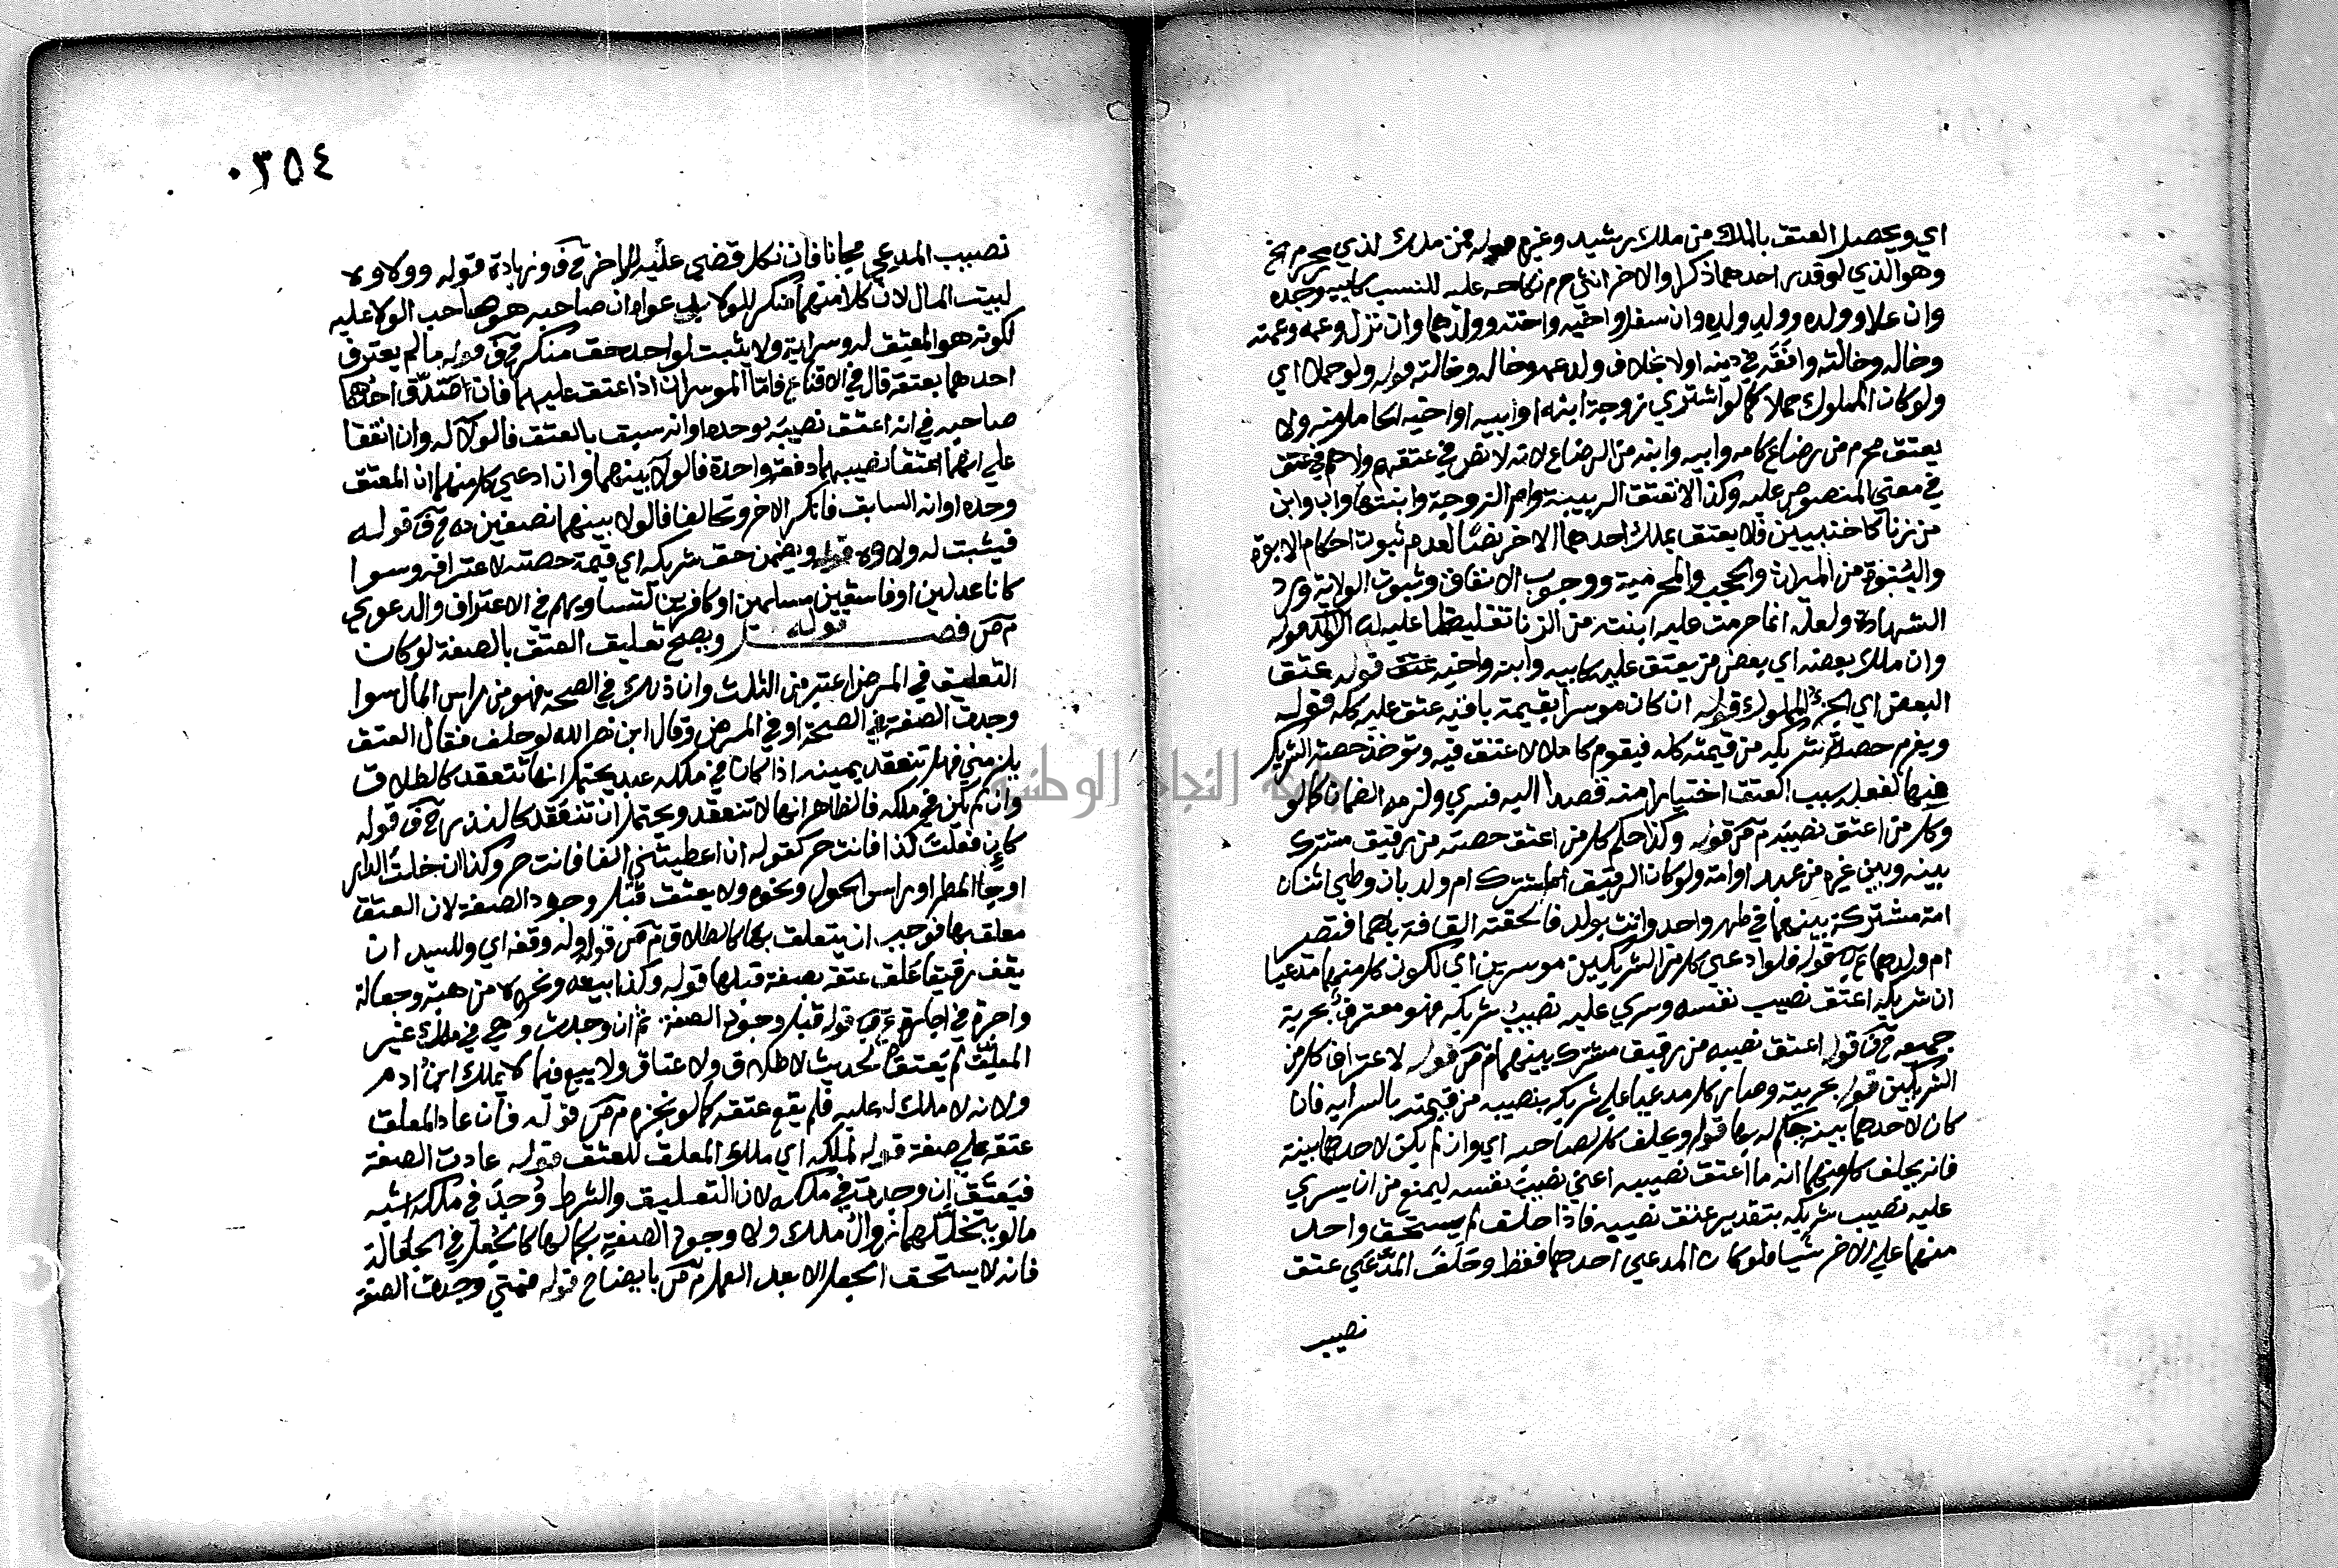 اي ويحصل العتق بالملك من ملك رشيد وغيره قوله فمن ملك لذي محرم الخ
وهو الذي لو قدر احدهما ذكرا والاخر انثي حرم نكاحه عليه للنسب كابيه وجده
وان علا وولده وولد ولده وان سفل واخيه واخته وولدهما وان نزل وعمه وعمته
وخاله وخالته وافقه في دينه او لا بخلاف ولد عمه وخاله وخالته قوله ولو حملا اي
ولو كان المملوك حملا كما لو اشتري زوجة ابنه او ابيه او اخيه الحامل منه ولا
يعتق محرم من رضاع كامه وابيه وابنه من الرضاع لانه لا نص في عتقهم ولا هم في عتق
في معني المنصوص عليه وكذا لا تعتق الربيبة وام الزوجة وابنتها واب وابن
من زنا كاجنبيين فلا يعتق بملك احدهما الاخر نصا لعدم ثبوت احكام الابوة
والبنوة من الميراث والحجب والمحرمية ووجوب الانفاق وثبوت الولاية ورد
الشهادة ولعله انما حرمت عليه ابنته من الزنا تغليظا عليه قوله
وان ملك بعضه اي بعض من يعتق عليه كابيه وابنه واخيه عتق قوله عتق
البعض اي الجزء المملوك قوله ان كان موسرا بقيمة باقيه عتق عليه كله قوله
ويغرم حصة شريكه من قيمته كله فيقوم كاملا لا عتق فيه وتوخذ حصة الشريك
منها لفعله سبب العتق اختيارا منه قصدا اليه فسري ولزمه الضمان كما لو
وكل من اعتق نصيبه م ص قوله وكذا حكم كل من اعتق حصته من رقيق مشترك
بينه وبين غيره من عبد او امة ولو كان الرقيق المشترك ام ولد بان وطي اثنان
امة مشتركة بينهما في طهر واحد واتت بولد فالحقته القافة بهما فتصير
ام ولدهما قوله فلو ادعي كل من الشريكين موسرين اي لكون كل منهما مدعيا
ان شريكه اعتق نصيب نفسه وسري عليه نصيب شريكه فهو معترف بحرية
جميعه قوله اعتق نصيبه من رقيق مشترك بينهما م ص قوله لاعتراف كل من
الشريكين قوله بحريته وصار كل مدعيا علي شريكه بنصيبه من قيمته بالسرايه فان
كان لاحدهما بينة حكم له بها قوله ويحلف كل لصاحبه اي وان لم يكن لاحدهما بينة
فانه يحلف كل منهما انه ما اعتق نصيبه اعني نصيب نفسه ليمنع من ان يسري
عليه نصيب شريكه بتقدير عتق نصيبه فاذا حلف لم يستحق واحد
منهما علي الاخر شيا فلو كان المدعي احدهما فقط وحلف المدعي عتق
نصيب
٠٣٥٤
نصيب المدعي مجانا فان نكل قضي عليه للاخر وزيادة قوله وولاوه
لبيت المال لان كلا منهما منكر للولا بل عوا ان صاحبه هو صاحب الولا عليه
لكونه هو المعتق له وسراية ولا يثبت لواحد حق منكر قوله ما لم يعترف
احدهما بعتقه قال في الاقناع فاما الموسران اذا عتق عليهما فان صدق احدهما
صاحبه في انه اعتق نصيبه لوحده او انه سبق بالعتق فالولا له وان اتفقا
علي انهما اعتقا نصيبهما دفعة واحدة فالولا بينهما وان ادعي كل منهما ان المعتق
وحده او انه السابق فانكر الاخر وتحالفا فالولا بينهما نصفين قوله
فيثبت له ولاوه قوله ويضمن حق شريكه اي قيمة حصته لاعترافه وسوا
كانا عدلين او فاسقين مسلمين او كافرين لتساويهم في الاعتراف والدعوي
م ص فصل قوله ويصح تعليق العتق بالصفة لو كان
التعليق في المرض اعتبر من الثلث وان ذلك في الصحة فهو من راس المال سوا
وجدت الصفة في الصحة او في المرض وقال ابن نصر الله لو حلف فقال العتق
يلزمني فهل تنعقد يمينه اذا كان في ملكه عبد يحتمل انها تنعقد كالطلاق
وان لم يكن في ملكه فالظاهر انها لا تنعقد ويحتمل ان تنعقد كالنذر قوله
كان فعلت كذا فانت حر كقوله ان اعطيتني الفا فانت حر وكذا ان دخلت الدار
او جا المطر او راس الحول ونحوه ولا يعتق قبل وجود الصفة لان العتق
معلق بها فوجب ان يتعلق بها كالطلاق م ص قوله وله وقفه اي وللسيد ان
يقف رقيقا علق عتقه بصفة قبلها قوله وكذا بيعه ونحوه من هبة وجعالة
واجرة في اجارة قوله قبل وجود الصفة ثم ان وجدت وهي في ملك غير
المعلق لم يعتق لحديث لا طلاق ولا عتاق ولا بيع فيما لا يملك ابن ادم
ولانه لا ملك له عليه فلم يقع عتقه كما لو نجزه م ص قوله فان عاد المعلق
عتقه علي صفة قوله لملكه اي ملك المعلق للعتق قوله عادت الصفة
فيعتق ان وجدت في ملكه لان التعليق والشرط وجدا في ملكه اشبه
ما لو يتخللهما زوال ملك ولا وجود الصفة بكمالها كالجعل في الجعالة
فانه لا يستحق الجعل الا بعد العمل م ص بايضاح قوله فمتي وجدت الصفة